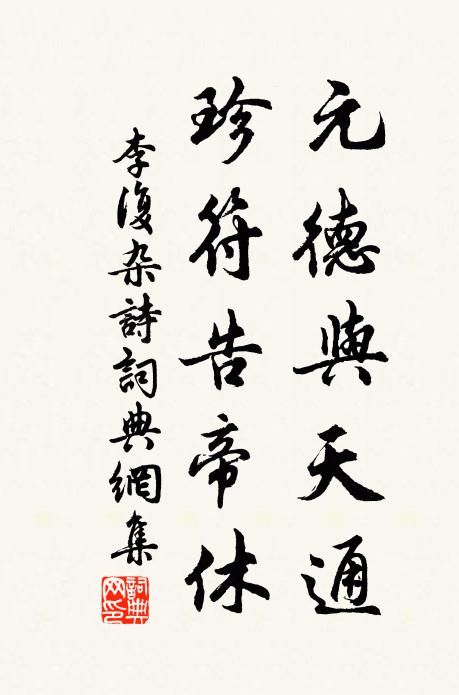 元德與天通
珍符告帝休
李復杂詩詞典網集
詞典網印